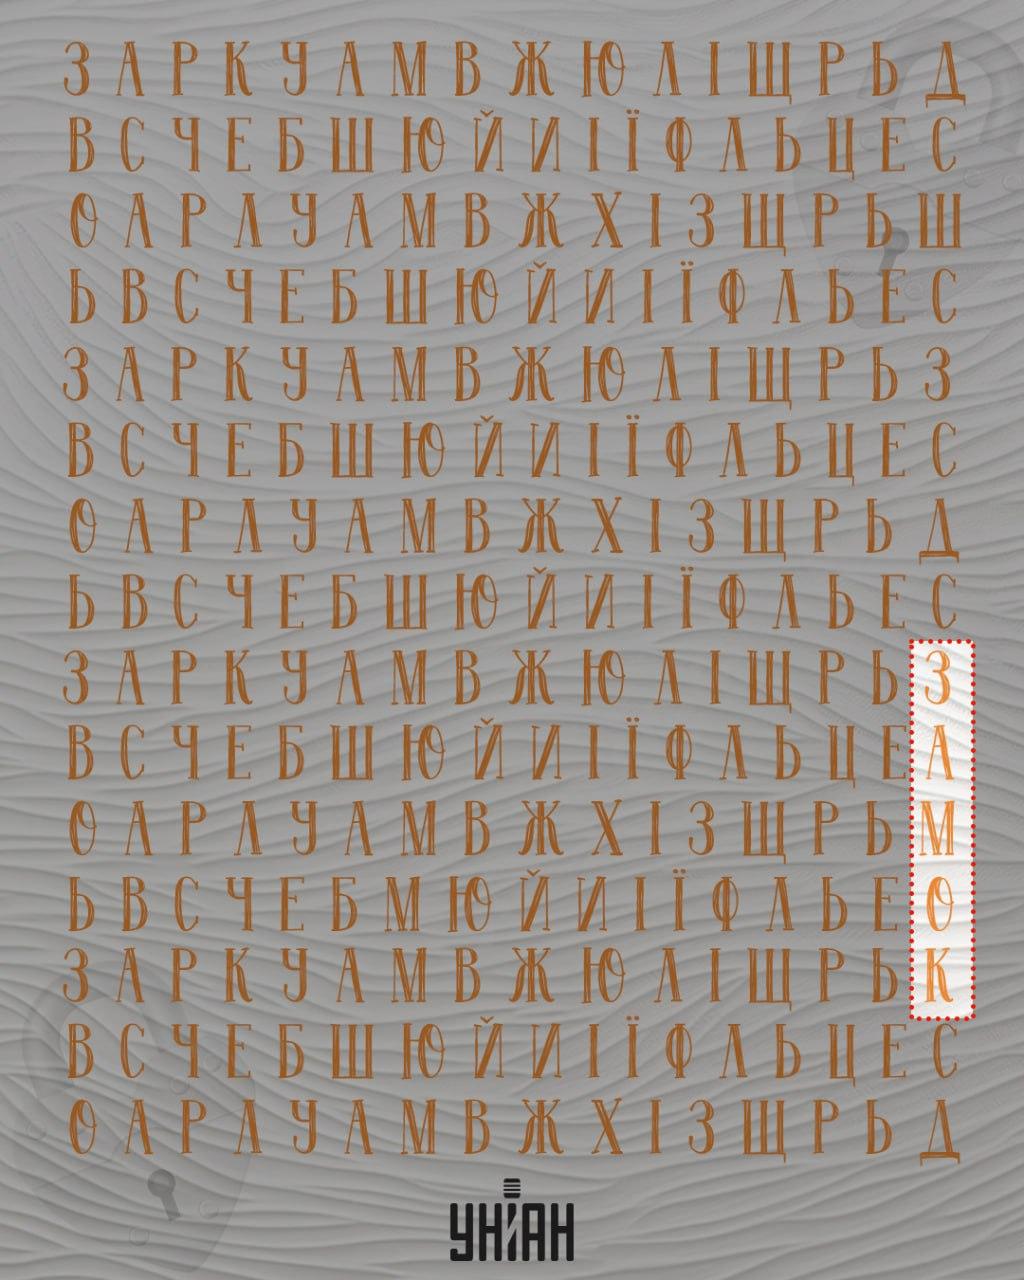 З А Р К У А М В Ж Ю Л І Щ Р Ь Д
В С Ч Е Б Ш Ю Й И І Ї Ф Л Ь Ц Е С
О А Р Л У А М В Ж Х І З Щ Р Ь Ш
Ь В С Ч Е Б Ш Ю Й И І Ї Ф Л Ь Е С
З А Р К У А М В Ж Ю Л І Щ Р Ь З
В С Ч Е Б Ш Ю Й И І Ї Ф Л Ь Ц Е С
О А Р Л У А М В Ж Х І З Щ Р Ь Д
Ь В С Ч Е Б Ш Ю Й И І Ї Ф Л Ь Е С
З А Р К У А М В Ж Ю Л І Щ Р Ь З
В С Ч Е Б Ш Ю Й И І Ї Ф Л Ь Ц Е А
О А Р Л У А М В Ж Х І З Щ Р Ь М
Ь В С Ч Е Б М Ю Й И І Ї Ф Л Ь Е О
З А Р К У А М В Ж Ю Л І Щ Р Ь К
В С Ч Е Б Ш Ю Й И І Ї Ф Л Ь Ц Е С
О А Р Л У А М В Ж Х І З Щ Р Ь Д
УНІАН